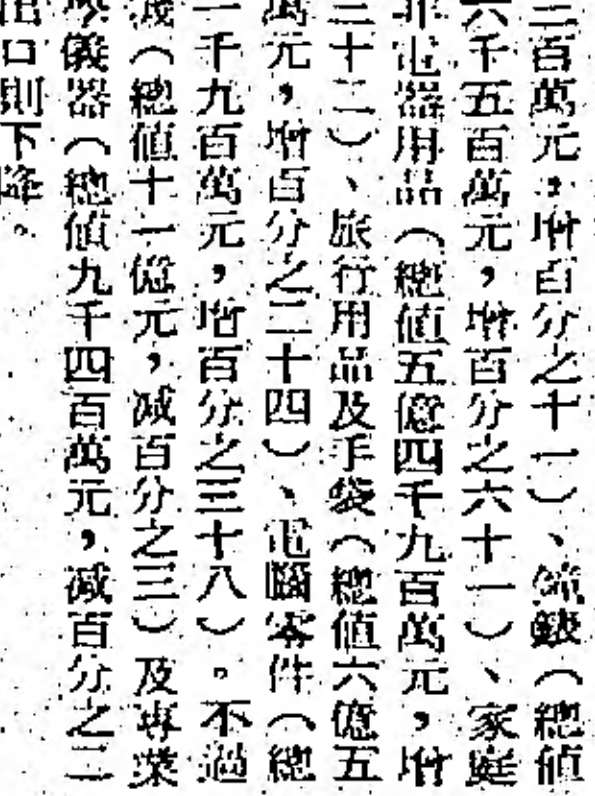 三百萬元，增百分之十一）、鐘錶（總值
六千五百萬元，增百分之六十一）、家庭
非電器用品（總值五億四千九百萬元，增
三十二）、旅行用品及手袋（總值六億五
萬元，增百分之二十四）、電腦零件（總
一千九百萬元，增百分之三十八）。不過
（總值十一億元，減百分之三）及專業
學儀器（總值九千四百萬元，減百分之二
出口則下降。